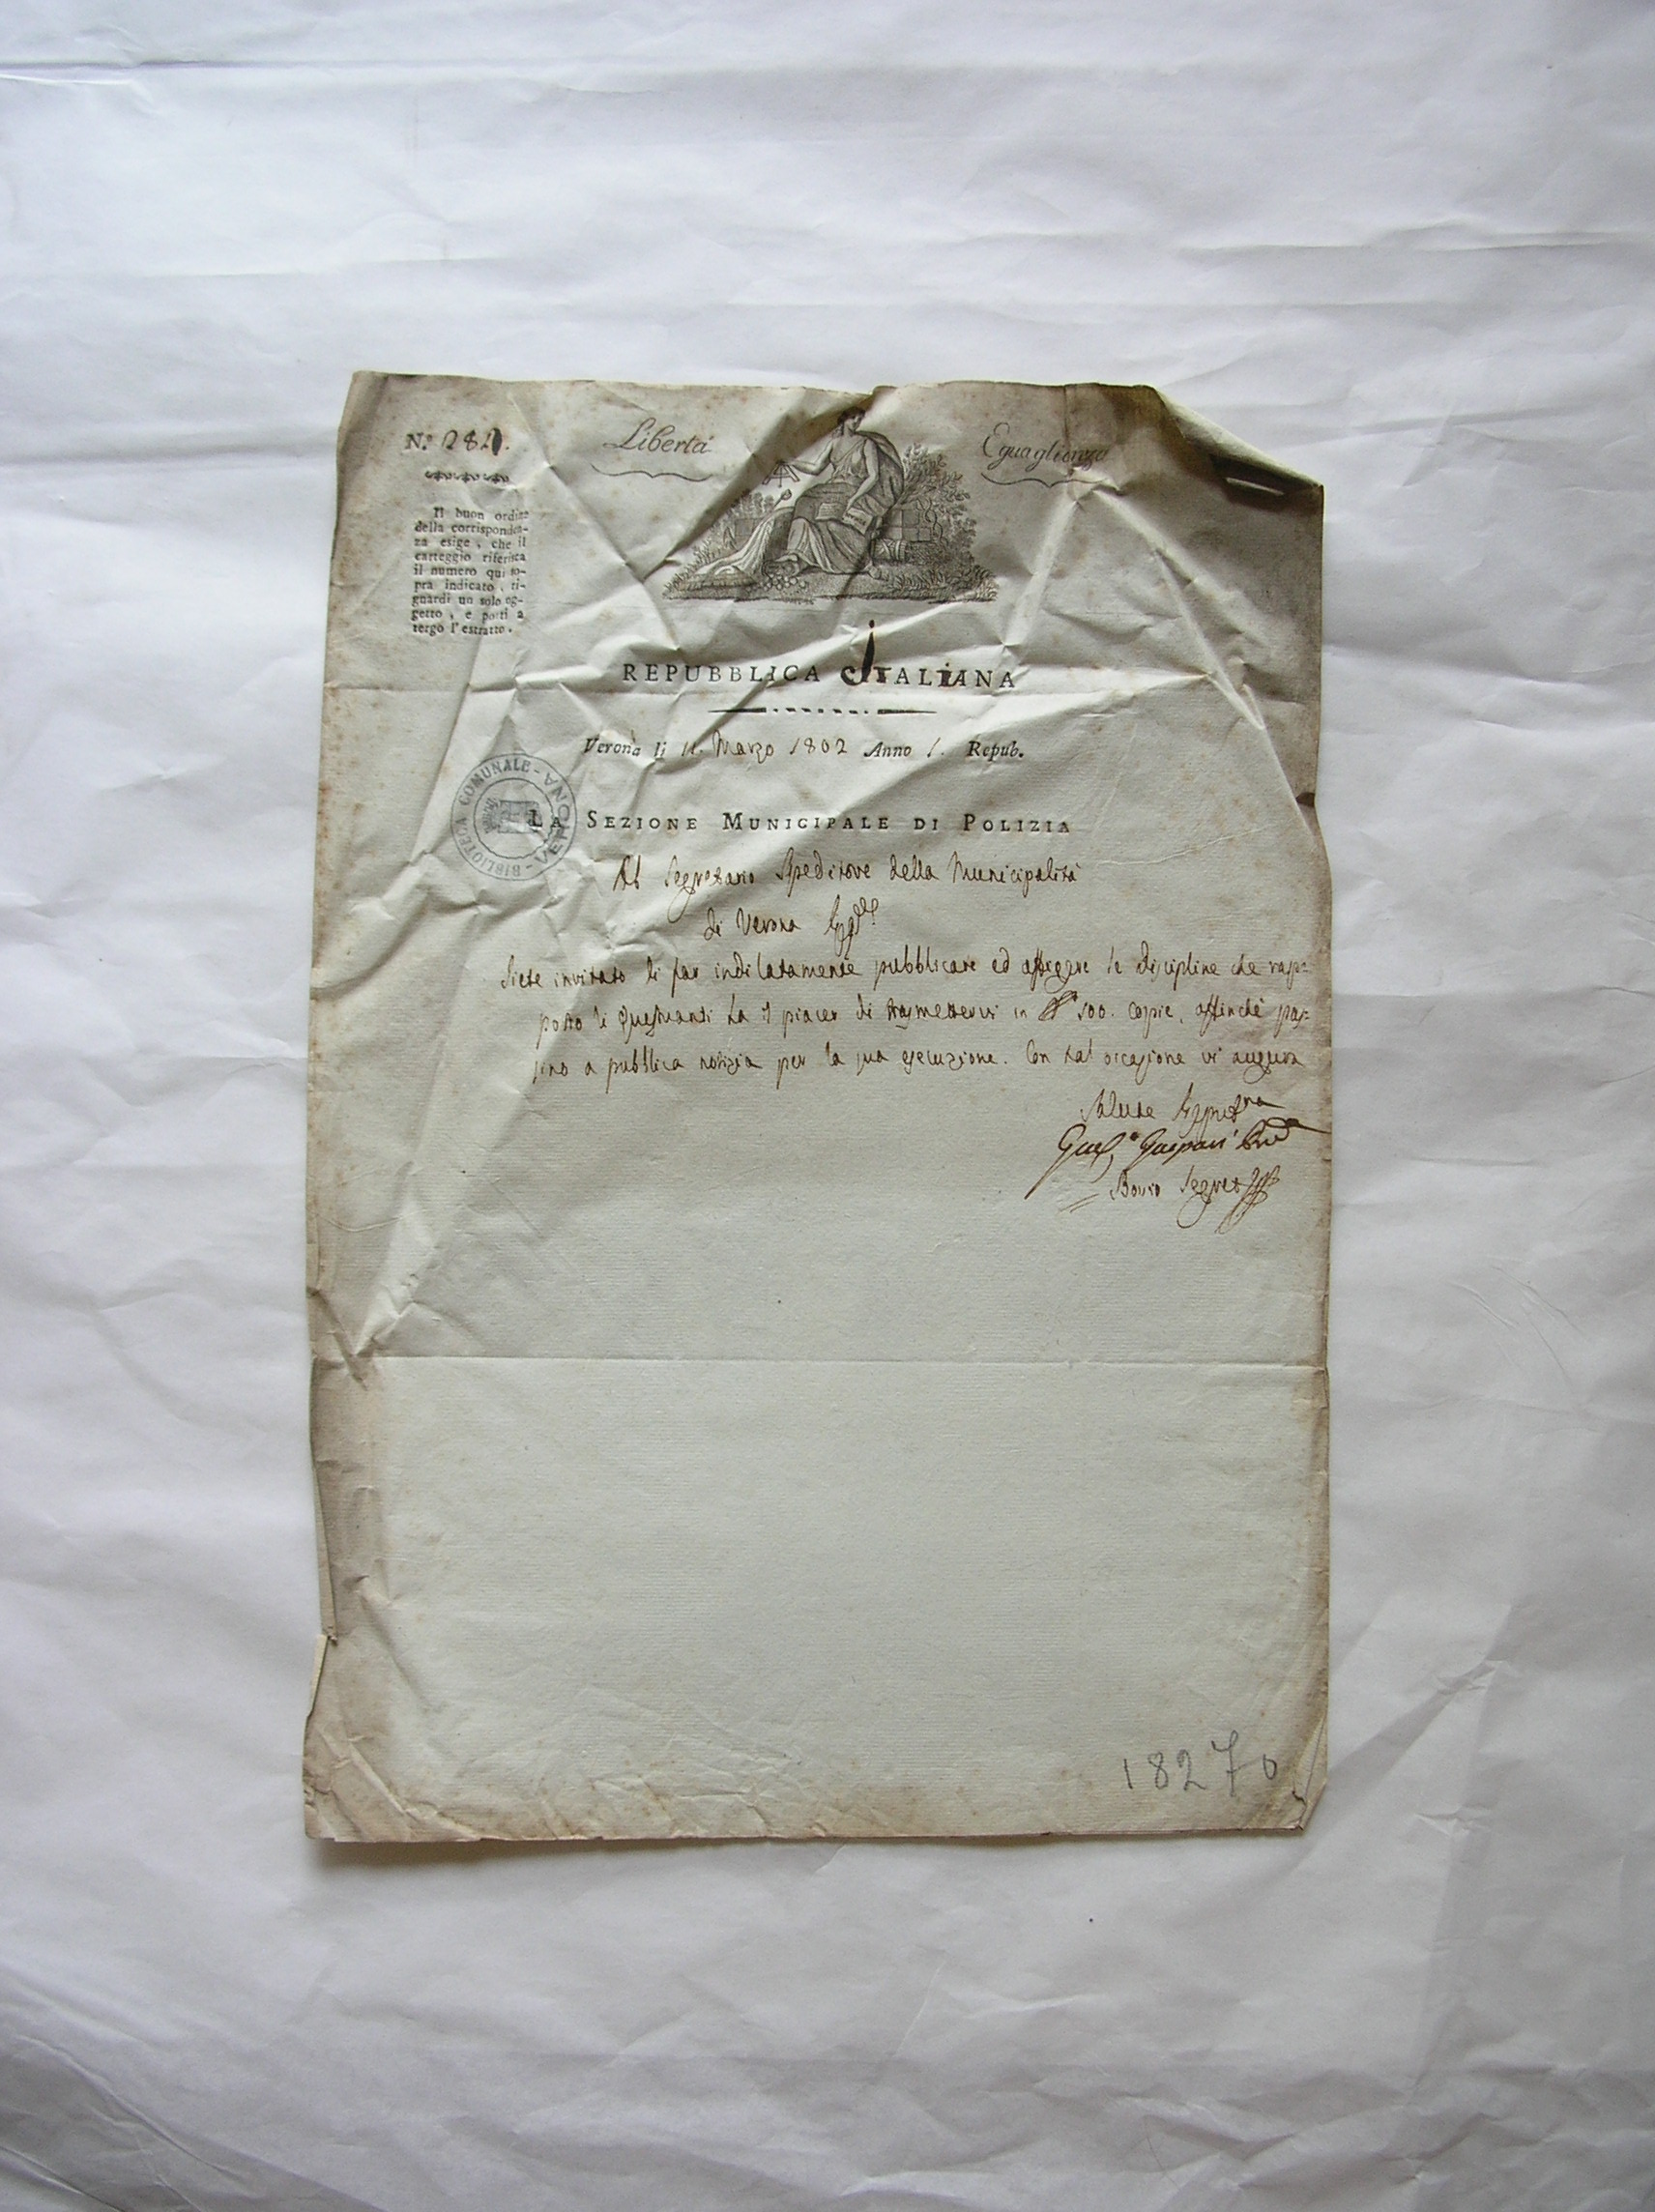 N.º 281.
Libertà
Eguaglianza
Il buon ordine
della corrisponden-
za esige, che il
carteggio riferisca
il numero qui so-
pra indicato, ri-
guardi un solo og-
getto, e porti a
tergo l'estratto.
REPUBBLICA ITALIANA
Verona li 11. Marzo 1802 Anno I. Repub.
BIBLIOTECA COMUNALE - VERONA -
LA SEZIONE MUNICIPALE DI POLIZIA
Al Segretario Speditore della Municipalità
di Verona
Siete invitato di far indilatamente pubblicare ed affiggere le discipline che rap-
porto li Questuanti ha il piacer di trasmettervi in 500. Copie, affinchè pas-
sino a pubblica notizia per la sua esecuzione. Con tal occasione vi augura
Salute
Gaspari
Bovio Segret
18270